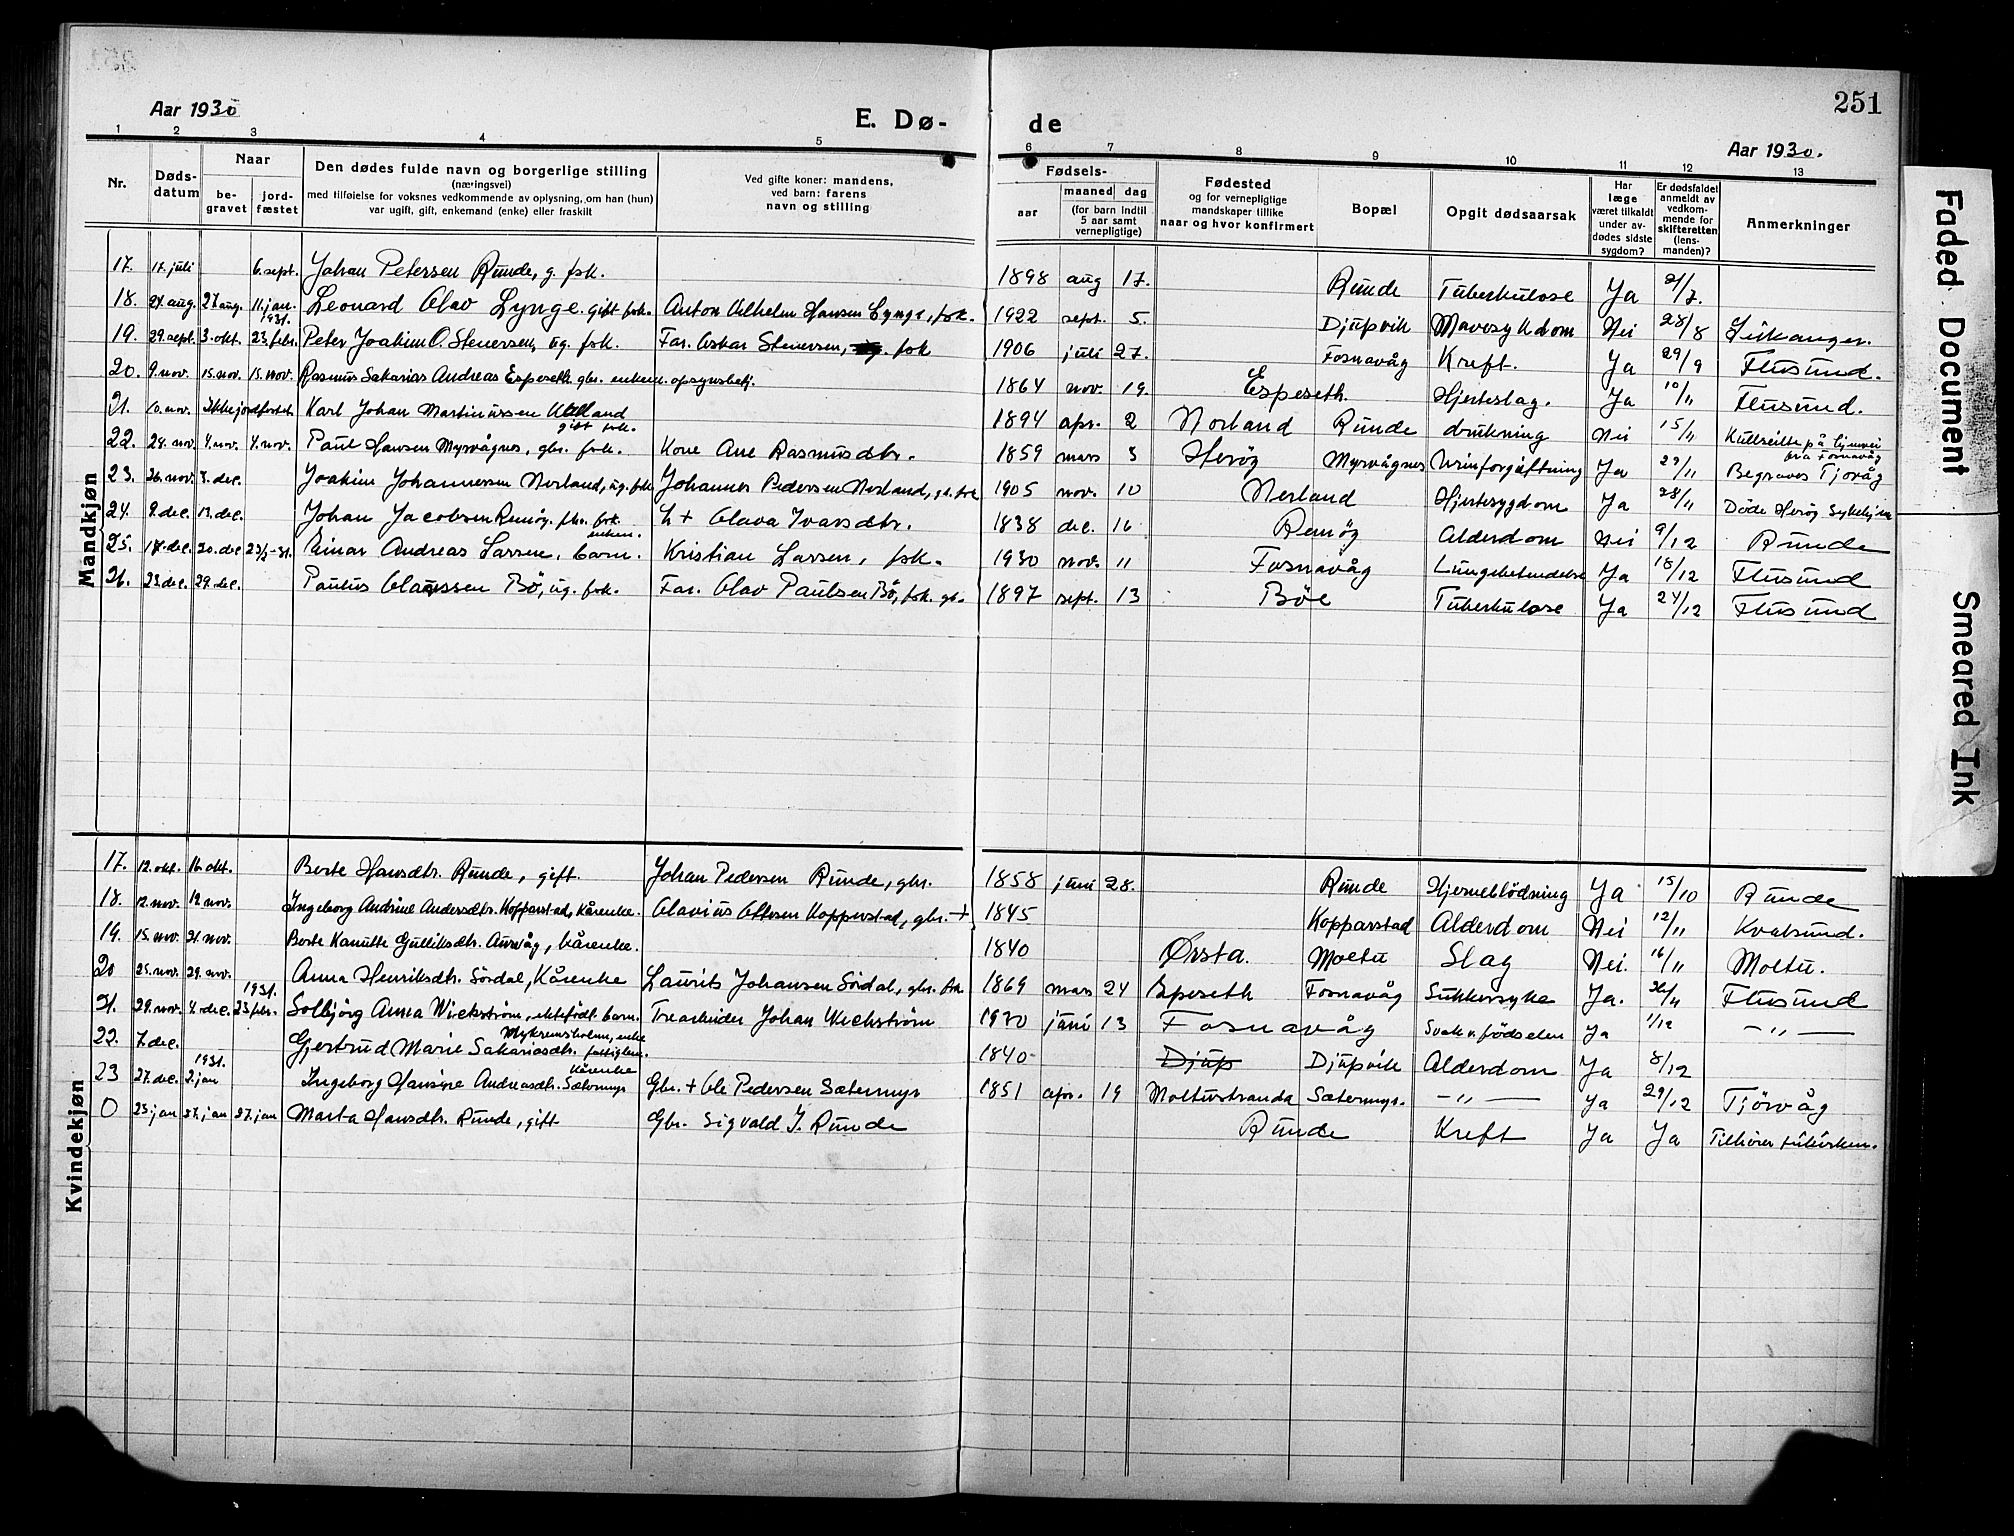 251
Aar 1930
E. Dø- de
Aar 1930.
1 2 3 4 5 6 7 8 9 10 11 12 13
Nr. Døds-datum Naar be-gravet jord-fæstet Den dødes fulde navn og borgerlige stilling (næringsvei) med tilføielse for voksnes vedkommende av oplysning, om han (hun) var ugift, gift, enkemand (enke) eller fraskilt Ved gifte koner: mandens, ved barn: farens navn og stilling Fødsels- aar maaned dag (for barn indtil 5 aar samt vernepligtige) Fødested og for vernepligtige mandskaper tillike naar og hvor konfirmert Bopæl Opgit dødsaarsak Har læge været tilkaldt under av-dødes sidste sygdom? Er dødsfaldet anmeldt av vedkom-mende for skifteretten (lens-manden)? Anmerkninger
Mandkjøn
17. 17. juli 6. sept. Johan Petersen Runde, g. fsk. 1898 aug 17. Runde Tuberkulose Ja 21/7.
18. 24. aug. 27 aug. 11. jan. 1931. Leonard Olav Lynge. gift fsk. Anton Vilhelm Hansen Lynge, fsk. 1922 sept. 5. Djupvik Mavesykdom Nei 28/8 Leikanger.
19. 29. sept. 3. okt. 23. febr. Peter Joakim O. Stenersen, ug. fsk. Far. Oskar Stenersen, fsk 1906 juli 27. Fosnavåg Kreft. Ja 29/9 Flusund.
20. 9. nov. 15. nov. 15. nov. Rasmus Sakarias Andreas Espeseth gbr. enkem. opsynsbetj. 1864 nov. 19. Espeseth. Hjerteslag. Ja 10/11 Flusund.
21. 10. nov. Ikke jordfæstet. Karl Johan Martinussen gift fsk. 1894 apr. 2 Norland Runde drukning Nei 15/11 Kullseilte på hjemvei fra Fosnavåg
22. 24. nov. 4. nov. 4. nov. Paul Hansen Myrvågnes, gbr. fsk. Kone Ane Rasmusdtr. 1859 mars 3 Herøy Myrvågnes Urinforgiftning Ja 29/11 Begraves Tjovåg
23. 26. nov. 3. dec. Joakim Johannessen Nerland, ug. fsk Johannes Pedersen Nerland, g. fsk 1905 nov. 10 Nerland Hjertesygdom Ja 28/11 Døde Herøy Sykehjem
24. 9. dec. 13. dec. Johan Jacobsen Remøy. fhv. fsk. enkem. h + Olava Ivarsdtr. 1838 dec. 16 Remøy Alderdom Nei 9/12 Runde
25. 18. dec. 20. dec 23/2-31. Einar Andreas Larsen, barn. Kristian Larsen, fsk. 1930 nov. 11 Fosnavåg Lungebetendelse Ja 18/12 Flusund
26. 23. dec. 29. dec. Paulus Olaussen Bö, ug. fsk. Far. Olav Paulsen Bö, fsk. gbr. 1897 sept. 13 Böe Tuberkulose Ja 24/12 Flusund
Kvindekjøn
17. 12. okt. 16. okt. Berte Hansdtr. Runde, gift. Johan Pedersen Runde, gbr. 1858 juni 28. Runde Hjerneblödning Ja 15/10 Runde
18. 12. nov. 19 nov. Ingeborg Andrine Andersdtr. Kopparstad, Kårenke. Olavius Ottesen Kopperstad, gbr. + 1845 Kopparstad Alderdom Nei 12/11 Kvalsund.
19. 15. nov. 21. nov. Berte Kanutte Gulliksdtr. Aurvåg, kårenke. 1840 Ørsta. Moltu Slag Nei. 16/11 Moltu.
20 25. nov. 29. nov. Anna Henriksdtr. Sördal, Kårenke Laurits Johansen Sördal, gbr. fsk 1869 mars 24 Espeseth Fosnavåg Sukkersyke Ja. 26/11 Flusund
21. 29. nov. 4. dec. 1931. 23. febr. Solbjörg Anna Wickström, ektefödt barn. Trearbeider Johan Wickström 1930 juni 13 Fosnavåg Svak v. födselen Ja 1/12 —"—
22. 7. dec. Gjertrud Marie Sakariasdtr. Myklesholm, enke fattiglem. 1840- Djup Djupvik Alderdom Ja 8/12
23 27. dec. 1931. 2. jan Ingeborg Hansine Andreasdtr. Sætermyr Kårenke Gbr. + Ole Pedersen Sætermyr 1851 apr. 19 Moltustranda Sætermyr. —"— Ja 29/12 Tjörvåg
0 23. jan 27. jan 27. jan Marta Hansdtr. Runde, gift Gbr. Sigvald J. Runde Runde Kreft Ja Ja Tilhörer frikirken.
Faded Document
Smeared Ink